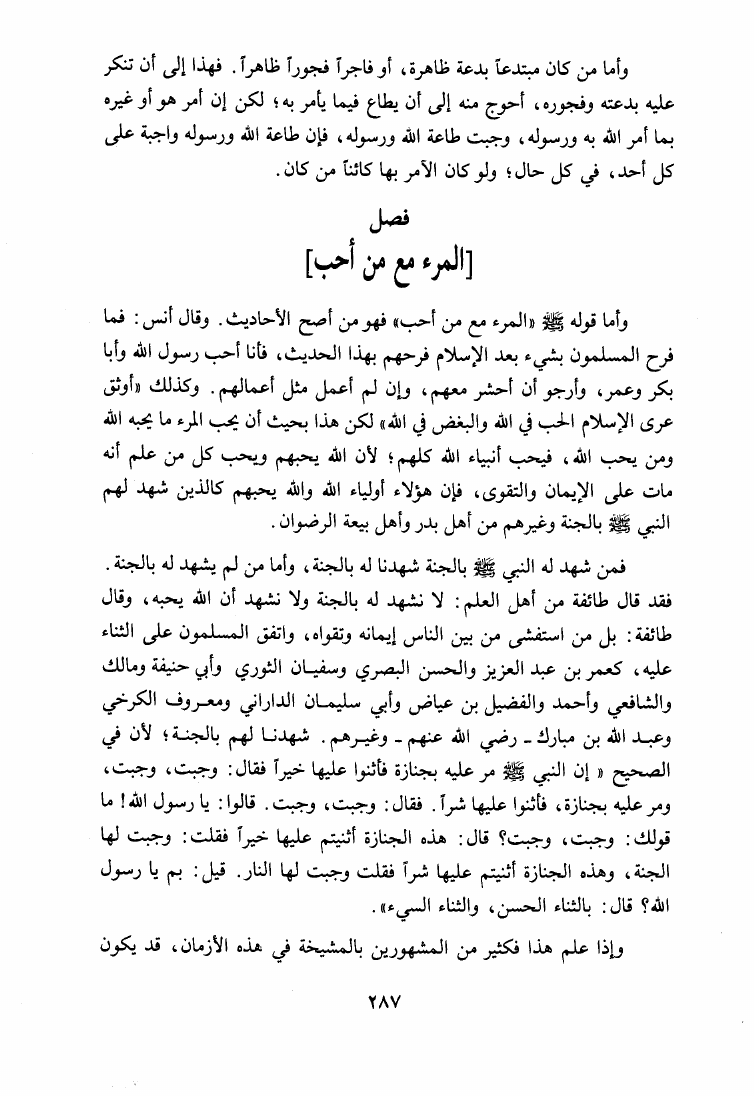 وأما من كان مبتدعاً بدعة ظاهرة، أو فاجراً فجوراً ظاهراً. فهذا إلى أن تنكر
عليه بدعته وفجوره، أحوج منه إلى أن يطاع فيما يأمر به؛ لكن إن أمر هو أو غيره
بما أمر الله به ورسوله، وجبت طاعة الله ورسوله، فإن طاعة الله ورسوله واجبة على
كل أحد، في كل حال؛ ولو كان الآمر بها كائناً من كان.
فصل
[المرء مع من أحب]
وأما قوله ﷺ «المرء مع من أحب» فهو من أصح الأحاديث. وقال أنس: فما
فرح المسلمون بشيء بعد الإسلام فرحهم بهذا الحديث، فأنا أحب رسول الله وأبا
بكر وعمر، وأرجو أن أحشر معهم، وإن لم أعمل مثل أعمالهم. وكذلك «أوثق
عرى الإسلام الحب في الله والبغض في الله» لكن هذا بحيث أن يحب المرء ما يحبه الله
ومن يحب الله، فيحب أنبياء الله كلهم؛ لأن الله يحبهم ويحب كل من علم أنه
مات على الإيمان والتقوى، فإن هؤلاء أولياء الله والله يحبهم كالذين شهد لهم
النبي ﷺ بالجنة وغيرهم من أهل بدر وأهل بيعة الرضوان.
فمن شهد له النبي ﷺ بالجنة شهدنا له بالجنة، وأما من لم يشهد له بالجنة.
فقد قال طائفة من أهل العلم: لا نشهد له بالجنة ولا نشهد أن الله يحبه، وقال
طائفة: بل من استفشى من بين الناس إيمانه وتقواه، واتفق المسلمون على الثناء
عليه، كعمر بن عبد العزيز والحسن البصري وسفيان الثوري وأبي حنيفة ومالك
والشافعي وأحمد والفضيل بن عياض وأبي سليمان الداراني ومعروف الكرخي
وعبد الله بن مبارك ـ رضي الله عنهم ـ وغيرهم. شهدنا لهم بالجنة؛ لأن في
الصحيح « إن النبي ﷺ مر عليه بجنازة فأثنوا عليها خيراً فقال: وجبت، وجبت،
ومر عليه بجنازة، فأثنوا عليها شراً. فقال: وجبت، وجبت. قالوا: يا رسول الله! ما
قولك: وجبت، وجبت؟ قال: هذه الجنازة أثنيتم عليها خيراً فقلت: وجبت لها
الجنة، وهذه الجنازة أثنيتم عليها شراً فقلت وجبت لها النار. قيل: بم يا رسول
الله؟ قال: بالثناء الحسن، والثناء السيء».
وإذا علم هذا فكثير من المشهورين بالمشيخة في هذه الأزمان، قد يكون
٢٨٧